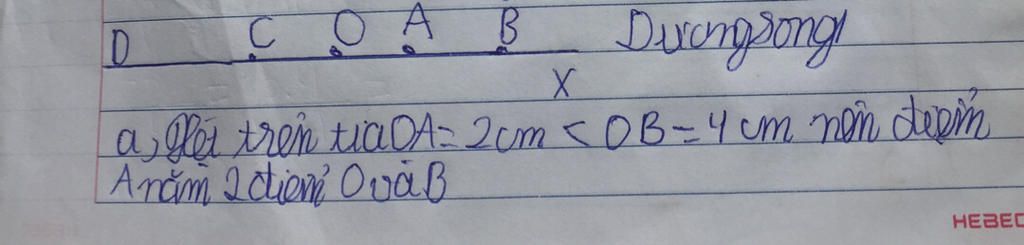 D C O A B Dươngsong
x
a, trên tia OA = 2cm < OB = 4 cm nên điểm
A nằm 2 điểm O và B
HEBEC